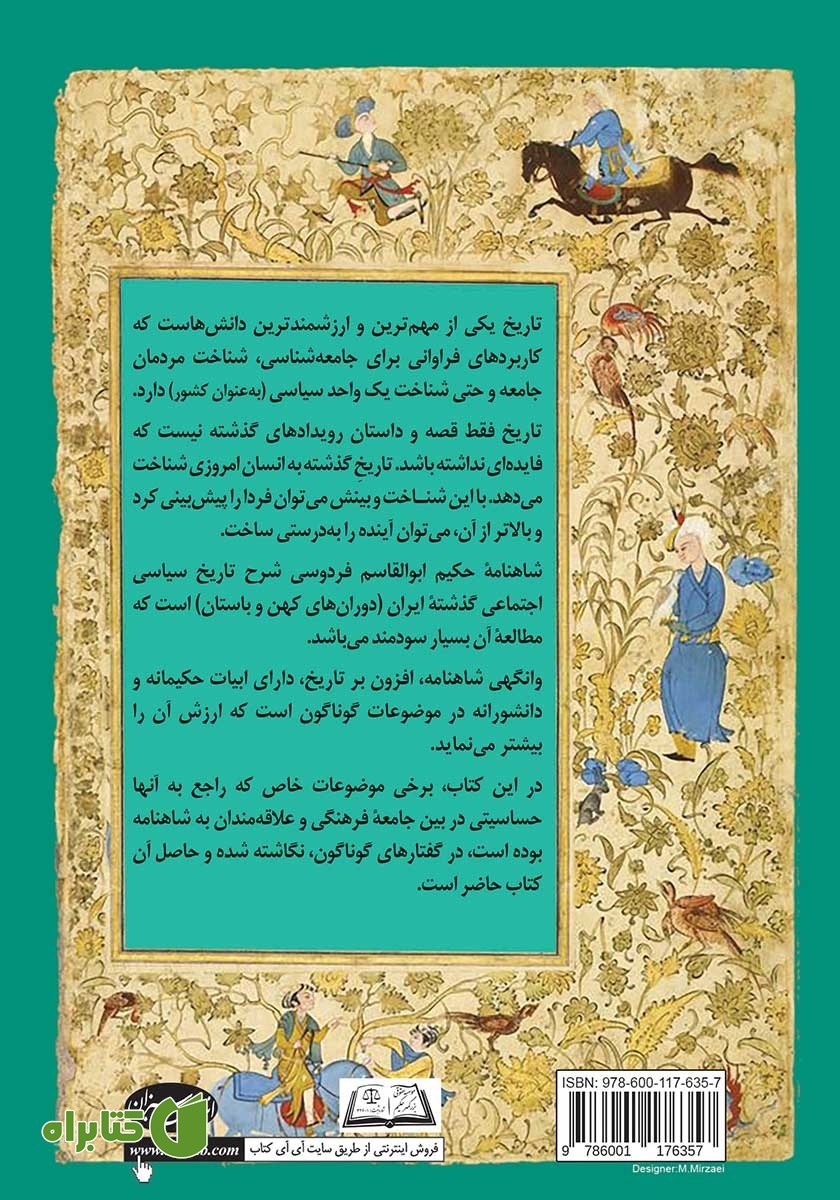 تاریخ یکی از مهم‌ترین و ارزشمندترین دانش‌هاست که
کاربردهای فراوانی برای جامعه‌شناسی، شناخت مردمان
جامعه و حتی شناخت یک واحد سیاسی (به‌عنوان کشور) دارد.
تاریخ فقط قصه و داستان رویدادهای گذشته نیست که
فایده‌ای نداشته باشد. تاریخِ گذشته به انسان امروزی شناخت
می‌دهد. با این شناخت و بینش می‌توان فردا را پیش‌بینی کرد
و بالاتر از آن، می‌توان آینده را به‌درستی ساخت.
شاهنامهٔ حکیم ابوالقاسم فردوسی شرح تاریخ سیاسی
اجتماعی گذشتهٔ ایران (دوران‌های کهن و باستان) است که
مطالعهٔ آن بسیار سودمند می‌باشد.
وانگهی شاهنامه، افزون بر تاریخ، دارای ابیات حکیمانه و
دانشورانه در موضوعات گوناگون است که ارزش آن را
بیشتر می‌نماید.
در این کتاب، برخی موضوعات خاص که راجع به آنها
حساسیتی در بین جامعهٔ فرهنگی و علاقه‌مندان به شاهنامه
بوده است، در گفتارهای گوناگون، نگاشته شده و حاصل آن
کتاب حاضر است.
ISBN: 978-600-117-635-7
9 786001 176357
Designer:M.Mirzaei
فروش اینترنتی از طریق سایت آی آی کتاب
کتابراه